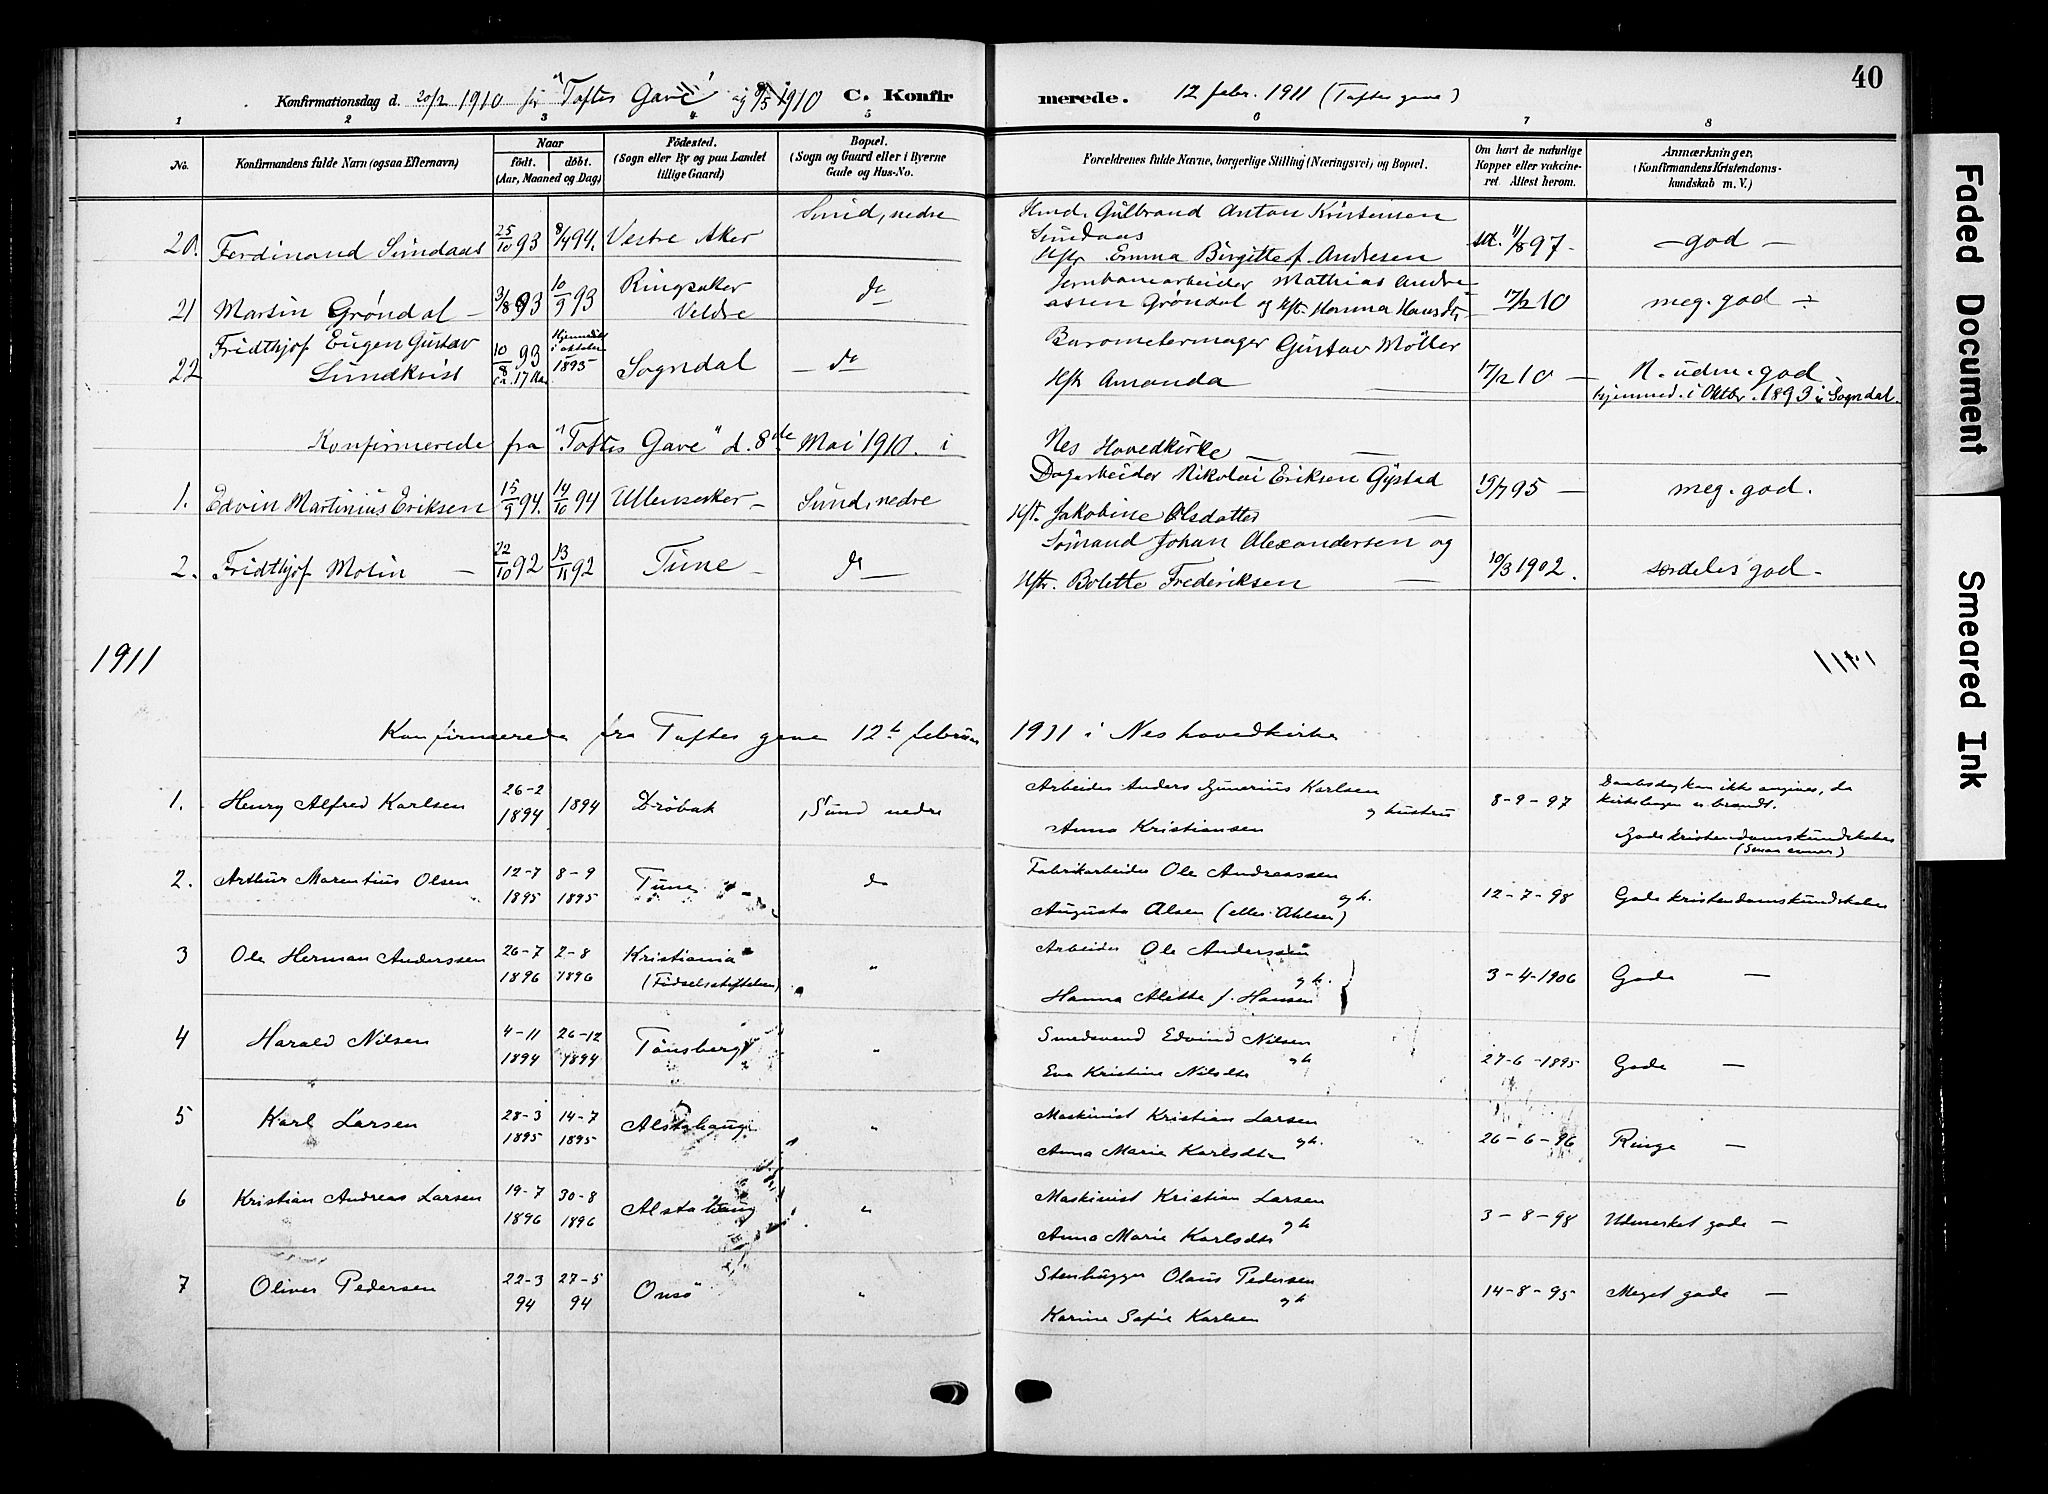 Konfirmationsdag d. 20/2 1910 for "Toftes Gave" og 8/5 1910 C. Konfirmerede. 12 febr. 1911 (Toftes gave) 40
1 2 3 4 5 6 7 8
No. Konfirmandens fulde Navn (ogsaa Efternavn) Naar født. døbt. (Aar, Maaned og Dag) Fødested. (Sogn eller By og paa Landet tillige Gaard) Bopæl. (Sogn og Gaard eller i Byerne Gade og Hus-No. Forældrenes fulde Navne, borgerlige Stilling (Næringsvei) og Bopæl. Om havt de naturlige Kopper eller vakcineret. Attest herom. Anmærkninger. (Konfirmandens Kristendomskundskab m. V.)
20. Ferdinand Sundaas 25/10 93 8/4 94. Vestre Aker Sund, nedre Gulbrand Anton Kristensen Sundaas Hstr. Emma Birgitte f. Andresen 11/8 97 - god -
21 Martin Grøndal 3/8 93 10/9 93 Ringsaker Veldre do Jernbanearbeider Mathias Andreassen Grøndal og Hst. Hanna Hansdt. 17/2 10 meg. god -
22 Fridthjof Eugen Gustav Sundkvist 10/8 93 Hjemmed. i oktober 1895 Sogndal do Barometermager Gustav Möller Hstr Amanda 17/2 10 - N. udm. god - hjemmed. i Oktbr. 1893 i Sogndal.
Konfirmerede fra "Toftes Gave" d. 8de Mai 1910. i Nes Hovedkirke
1. Edvin Martinius Eriksen 15/9 94. 14/10 94 Ullensaker Sund, nedre Dagarbeider Nikolai Eriksen Gystad Hst. Jakobine Olsdatter 19/7 95 - meg. god.
2. Fridthjof Molin 22/10 92 13/11 92 Tune do Sømand Johan Alexandersen og Hstr. Bolette Frederiksen 10/3 1902. særdeles god -
1911
Konfirmerede fra Toftes gave 12te februar 1911 i Nes hovedkirke
1. Henry Alfred Karlsen 26-2 1894 1894 Drøbak Sund nedre Arbeider Anders Gunerius Karlsen og hustru Anna Kristiansen 8-9-97 Daabsdag kan ikke angives, da kirkebogen er brændt. Gode kristendomskundskaber
2. Arthur Marentius Olsen 12-7 1895 8-9 1895 Tune do Fabrikarbeider Ole Andreassen og h. Augusta Olsen (eller Ohlsen) 12-7-98 Gode kristendomskundskaber
3 Ole Herman Anderssen 26-7 1896 2-8 1896 Kristiania (Fødselsstiftelsen) " Arbeider Ole Anderssen og h. Hanna Alette f. Hansen 3-4-1906 Gode -
4 Harald Nilsen 4-11 1894 26-12 1894 Tønsberg " Smedsvend Edvind Nilsen og h Eva Kristine Nilsdtr 27-6-1895 Gode -
5 Karl Larsen 28-3 1895 14-7 1895 Alstahaug " Maskinist Kristian Larsen og h. Anna Marie Karlsdtr 26-6-96 Ringe -
6 Kristian Andreas Larsen 19-7 1896 30-8 1896 Alstahaug " Maskinist Kristian Larsen og h Anna Marie Karlsdtr 3-8-98 Udmerket gode -
7 Oliver Pedersen 22-3 94 27-5 94 Onsø " Stenhugger Olaus Pedersen og h Karine Sofie Karlsen 14-8-95 Meget gode -
Faded Document
Smeared Ink